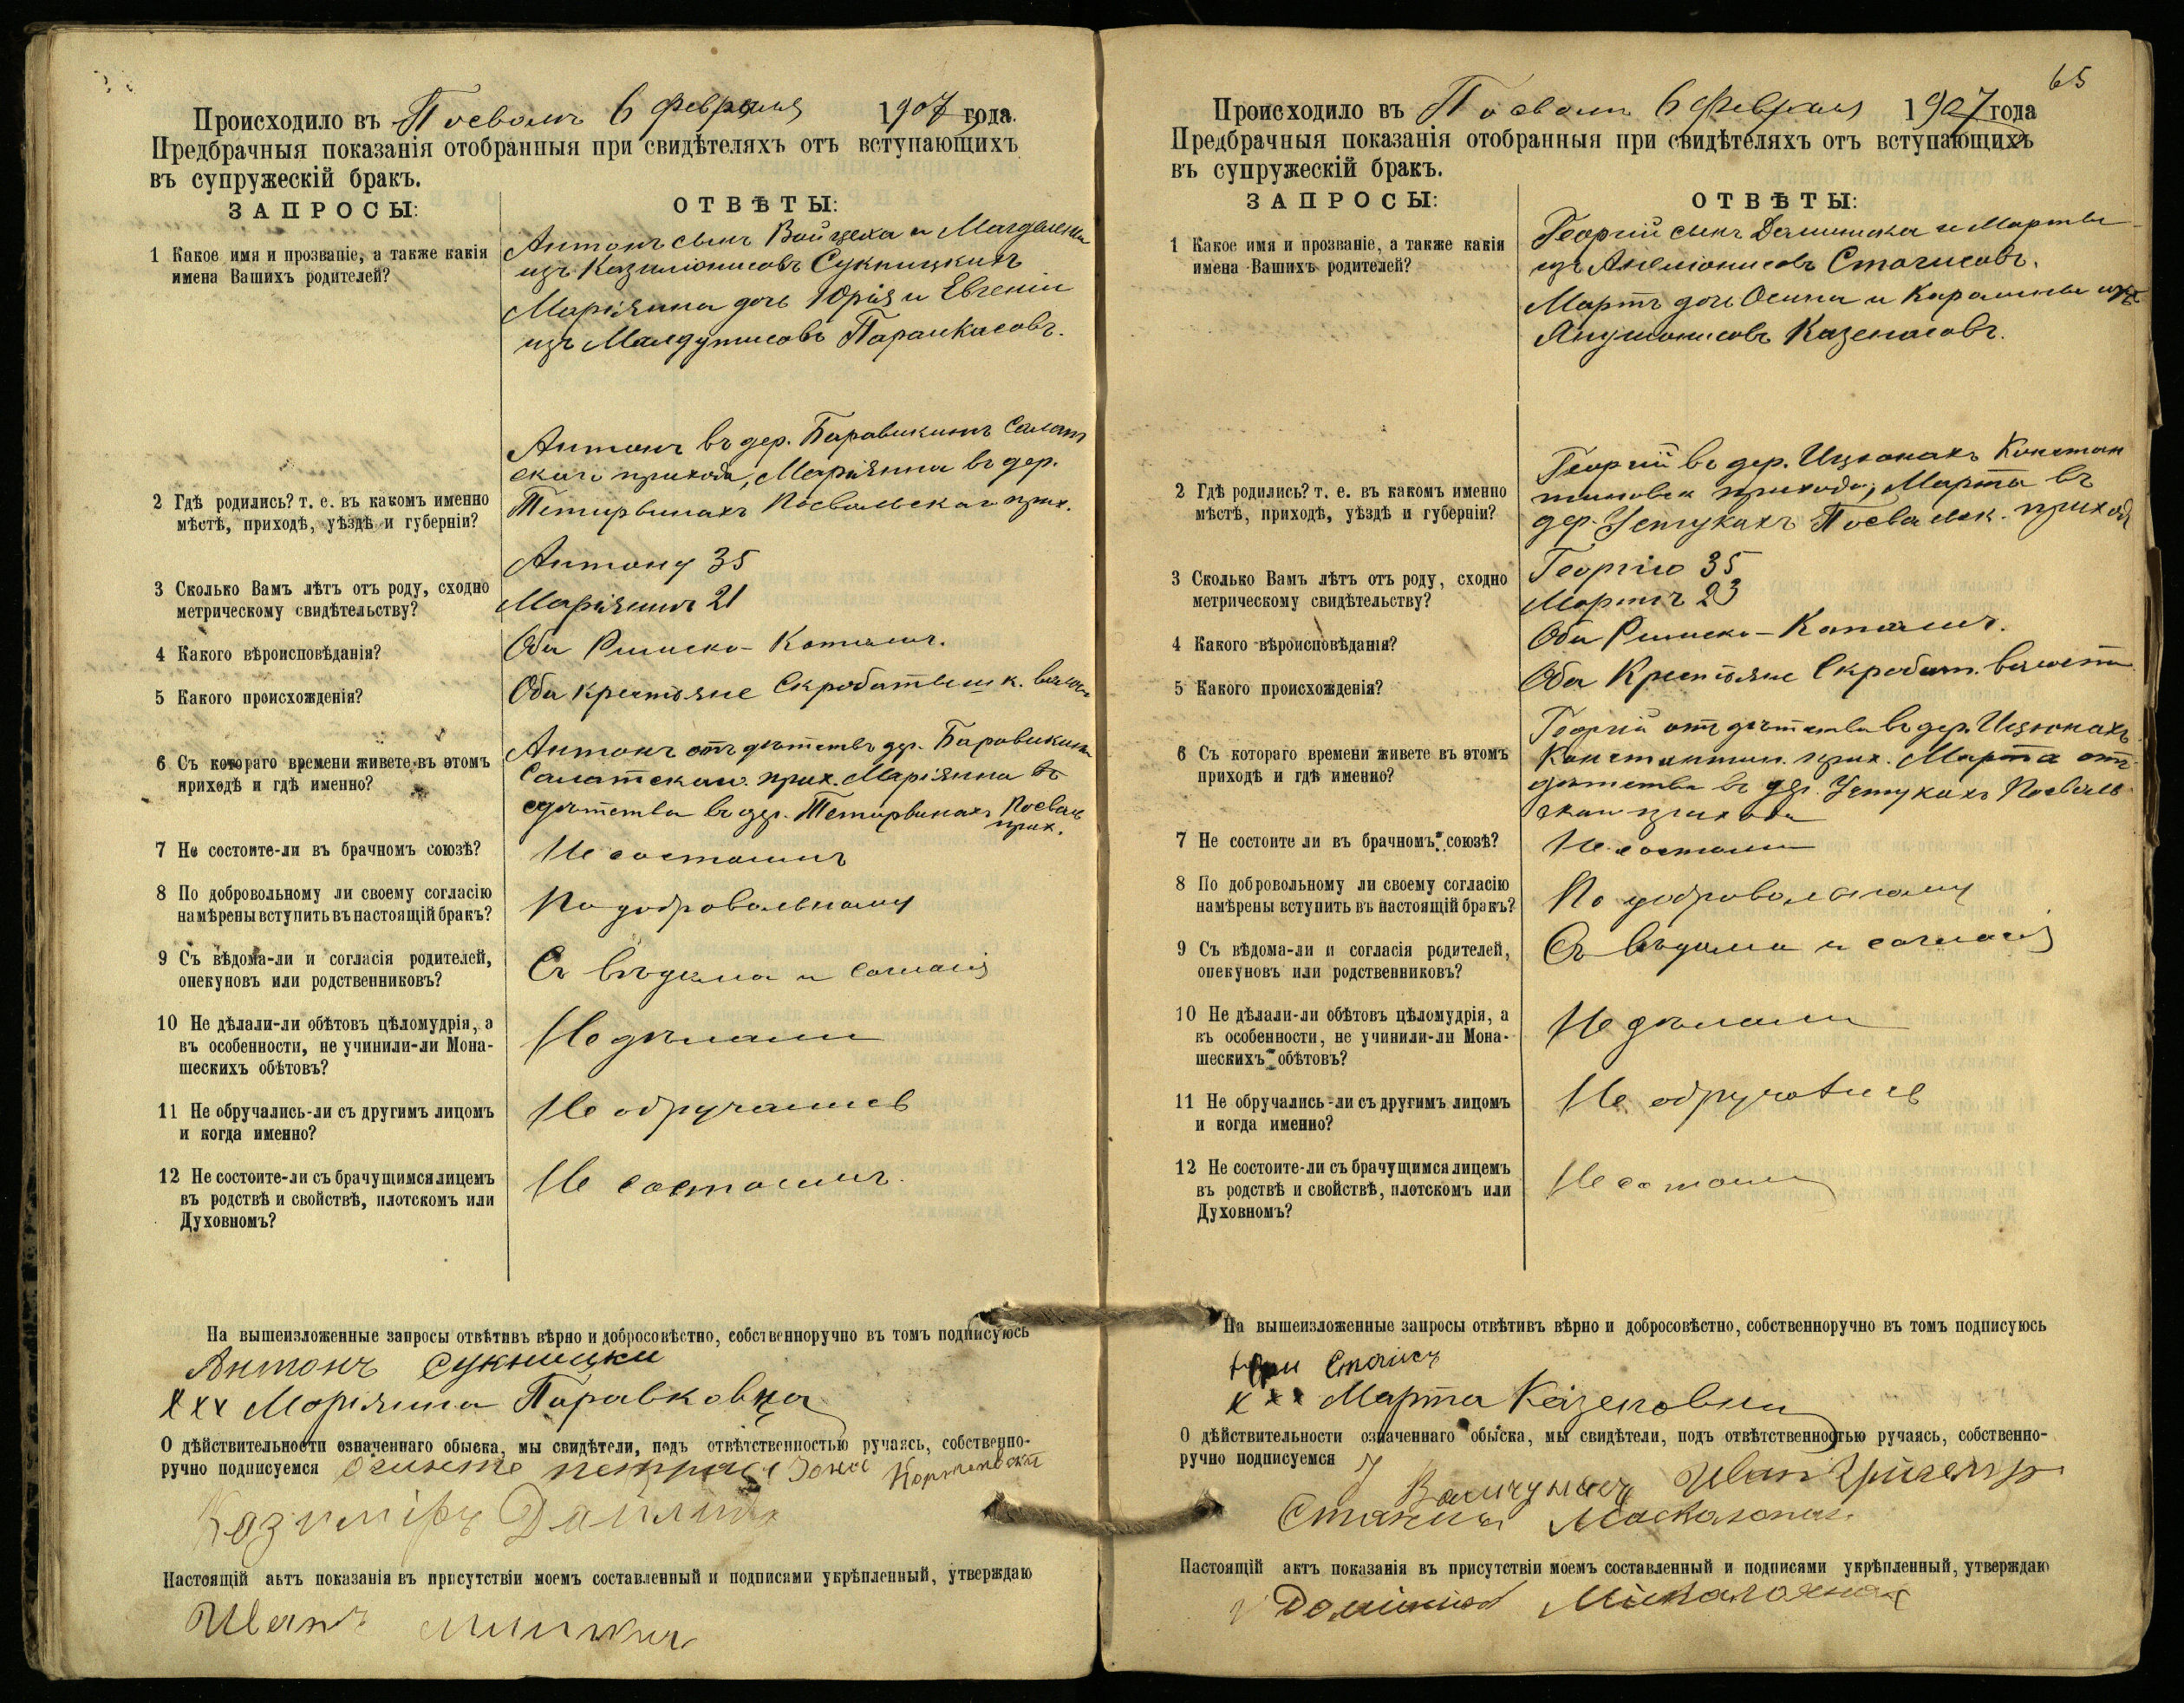 Происходило въ Посволѣ 6 февраля 1907 года.
Предбрачныя показанія отобранныя при свидѣтеляхъ отъ вступающихъ
въ супружескій бракъ.
ЗАПРОСЫ:
ОТВѢТЫ:
1 Какое имя и прозваніе, а также какія
имена Вашихъ родителей?
Антонъ сынъ Войцеха и Магдалены
изъ Казиліонисовъ Сукницкихъ
Маріянна дочь Юрія и Евгеніи
изъ Малдутисовъ Паракасовъ.
2 Гдѣ родились? т. е. въ какомъ именно
мѣстѣ, приходѣ, уѣздѣ и губерніи?
Антонъ въ дер. Баравикинъ Салат
скаго прихода, Маріянна въ дер.
Тетирвинахъ Посвольскаго прих.
3 Сколько Вамъ лѣтъ отъ роду, сходно
метрическому свидѣтельству?
Антону 35
Маріяннѣ 21
4 Какого вѣроисповѣданія?
Оба Римско-Католич.
5 Какого происхожденія?
Оба крестьяне Скробатишк. волости
6 Съ котораго времени живете въ этомъ
приходѣ и гдѣ именно?
Антонъ отъ дѣтствъ дер. Баравикинъ
Салатскаго прих. Маріянна въ
дѣтства въ дер. Тетирвинахъ Посволь
прих.
7 Не состоите-ли въ брачномъ союзѣ?
Не состоимъ
8 По добровольному ли своему согласію
намѣрены вступить въ настоящій бракъ?
По добровольному
9 Съ вѣдома-ли и согласія родителей,
опекуновъ или родственниковъ?
Съ вѣдома и согласія
10 Не дѣлали-ли обѣтовъ цѣломудрія, а
въ особенности, не учинили-ли Мона-
шескихъ обѣтовъ?
Не дѣлали
11 Не обручались-ли съ другимъ лицомъ
и когда именно?
Не обручались
12 Не состоите-ли съ брачущимся лицемъ
въ родствѣ и свойствѣ, плотскомъ или
Духовномъ?
Не состоимъ.
На вышеизложенные запросы отвѣтивъ вѣрно и добросовѣстно, собственноручно въ томъ подписуюсь
Антонъ Сукницки
ххх Маріянна Паравковна
О дѣйствительности означеннаго обыска, мы свидѣтели, подъ отвѣтственностью ручаясь, собственно-
ручно подписуемся
Казимѣръ Даилида
Настоящій актъ показанія въ присутствіи моемъ составленный и подписями укрѣпленный, утверждаю
Иванъ
65
Происходило въ Посволѣ 6 февраля 1907 года
Предбрачныя показанія отобранныя при свидѣтеляхъ отъ вступающихъ
въ супружескій бракъ.
ЗАПРОСЫ:
ОТВѢТЫ:
1 Какое имя и прозваніе, а также какія
имена Вашихъ родителей?
Георгій сынъ Доминика и Марты
изъ Стачисовъ.
Марта дочь Осипа и Каралины изъ
Янушонисовъ Казенасовъ.
2 Гдѣ родились? т. е. въ какомъ именно
мѣстѣ, приходѣ, уѣздѣ и губерніи?
Георгій въ дер. Ицюнахъ Констан
тиновск прихода, Марта въ
дер. Устукахъ Посвольск. прихода
3 Сколько Вамъ лѣтъ отъ роду, сходно
метрическому свидѣтельству?
Георгію 35
Мартѣ 23
4 Какого вѣроисповѣданія?
Оба Римско-Католич.
5 Какого происхожденія?
Оба Крестьяне Скробат. волости
6 Съ котораго времени живете въ этомъ
приходѣ и гдѣ именно?
Георгій отъ дѣтства въ дер. Ицюнахъ
Константин. прих. Марта отъ
дѣтства въ дер. Устукахъ Посволь
скаго прихода
7 Не состоите ли въ брачномъ союзѣ?
Не состоимъ
8 По добровольному ли своему согласію
намѣрены вступить въ настоящій бракъ?
По добровольному
9 Съ вѣдома-ли и согласія родителей,
опекуновъ или родственниковъ?
Съ вѣдома и согласія
10 Не дѣлали-ли обѣтовъ цѣломудрія, а
въ особенности, не учинили-ли Мона-
шескихъ обѣтовъ?
Не дѣлали
11 Не обручались-ли съ другимъ лицомъ
и когда именно?
Не обручались
12 Не состоите-ли съ брачущимся лицемъ
въ родствѣ и свойствѣ, плотскомъ или
Духовномъ?
Не состоимъ
На вышеизложенные запросы отвѣтивъ вѣрно и добросовѣстно, собственноручно въ томъ подписуюсь
ххх Марта Казеновна
О дѣйствительности означеннаго обыска, мы свидѣтели, подъ отвѣтственностью ручаясь, собственно-
ручно подписуемся
Иванъ
Настоящій актъ показанія въ присутствіи моемъ составленный и подписями укрѣпленный, утверждаю